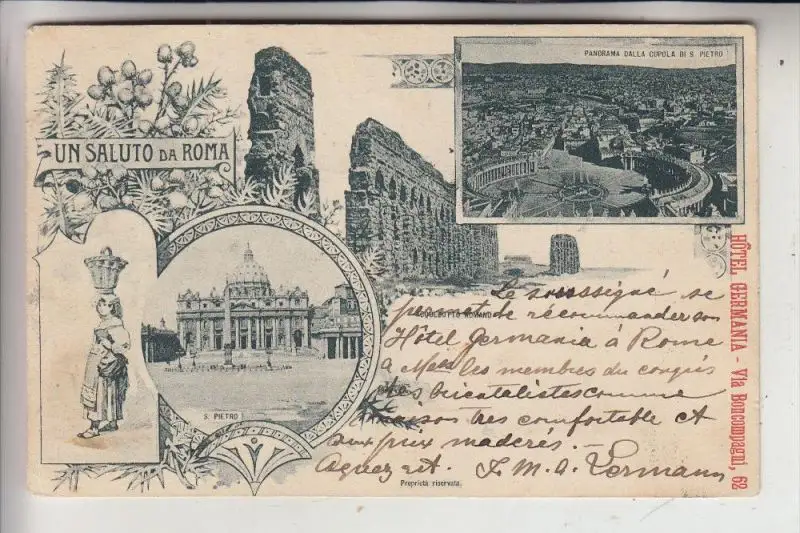 PANORAMA DALLA CUPOLA DI S. PIETRO
UN SALUTO DA ROMA
S. PIETRO
ACQUEDOTTO ROMANO
HÔTEL GERMANIA - Via Boncompagni, 62
Le soussigné se
permet de recommander son
Hôtel Germania à Rome
à les membres du congrès
des comme
maison très comfortable et
aux prix moderes. -
Lermann
Proprietà riservata.